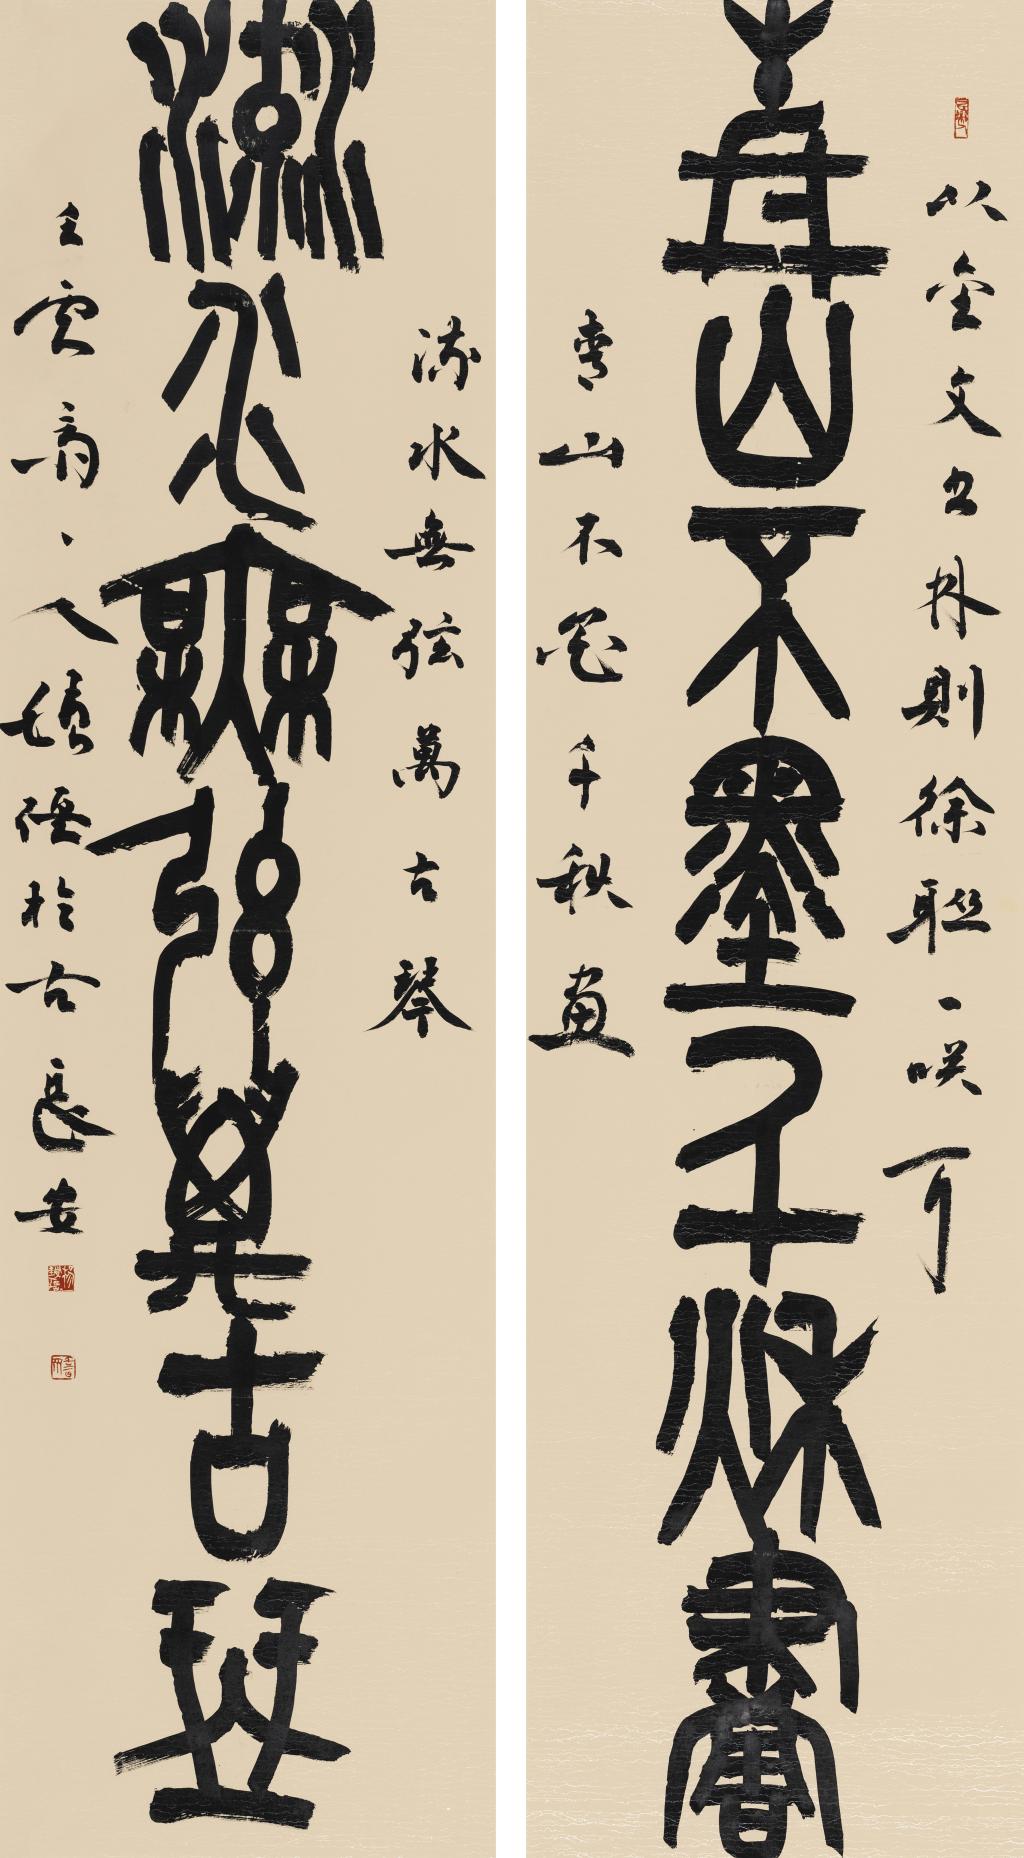 以金文书林則徐聯一咲可
青山不墨千秋畫
青山不墨千秋畫
流水無弦萬古琴
流水無弦萬古琴
壬寅 於古長安